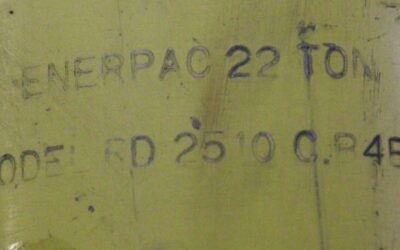 ENERPAC 22 TON
ODEL RD 2510 C.R4B